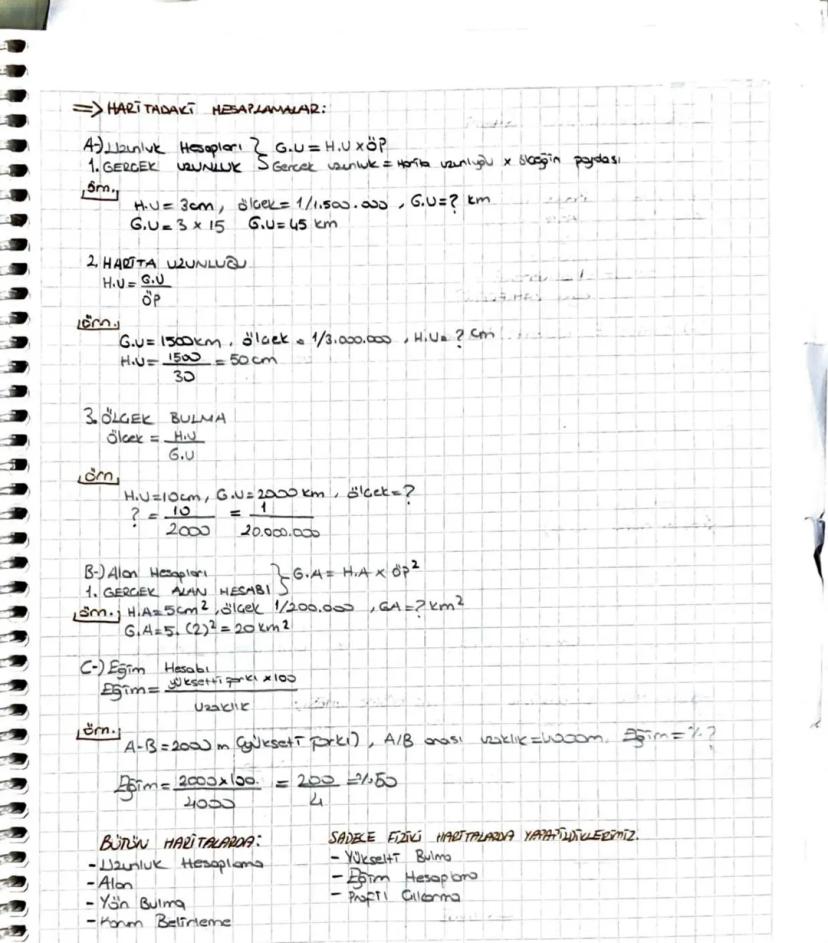 ⇒ HARİTADAKİ HESAPLAMALAR:
A-) Uzunluk Hesapları } G.U = H.U x ÖP
1. GERÇEK UZUNLUK } Gerçek uzunluk = Harita uzunluğu x ölçeğin paydası
örn.
H.U = 3cm, ölçek = 1/1.500.000, G.U=? km
G.U = 3 x 15 G.U = 45 km
2. HARİTA UZUNLUĞU
H.U = G.U / ÖP
örn.
G.U = 1500km, ölçek = 1/3.000.000, H.U = ? cm
H.U = 1500 / 30 = 50 cm
3. ÖLÇEK BULMA
ölçek = H.U / G.U
örn.
H.U=10cm, G.U=2000 km, ölçek=?
? = 10 / 2000 = 1 / 20.000.000
B-) Alan Hesapları } G.A = H.A x ÖP²
1. GERÇEK ALAN HESABI
örn. H.A=5cm², ölçek 1/200.000, GA=? km²
G.A=5. (2)² = 20 km²
C-) Eğim Hesabı
Eğim = yükselti farkı x100 / uzaklık
örn.
A-B = 2000 m (yükselti farkı), A/B arası uzaklık=4000m. Eğim = %?
Eğim = 2000x100 / 4000 = 200 / 4 = %50
BÜTÜN HARİTALARDA: SADECE FİZİKİ HARİTALARDA YAPABİLDİKLERİMİZ.
- Uzunluk Hesaplama - Yükselti Bulma
- Alan - Eğim Hesaplama
- Yön Bulma - Profil Çıkarma
- Konum Belirleme